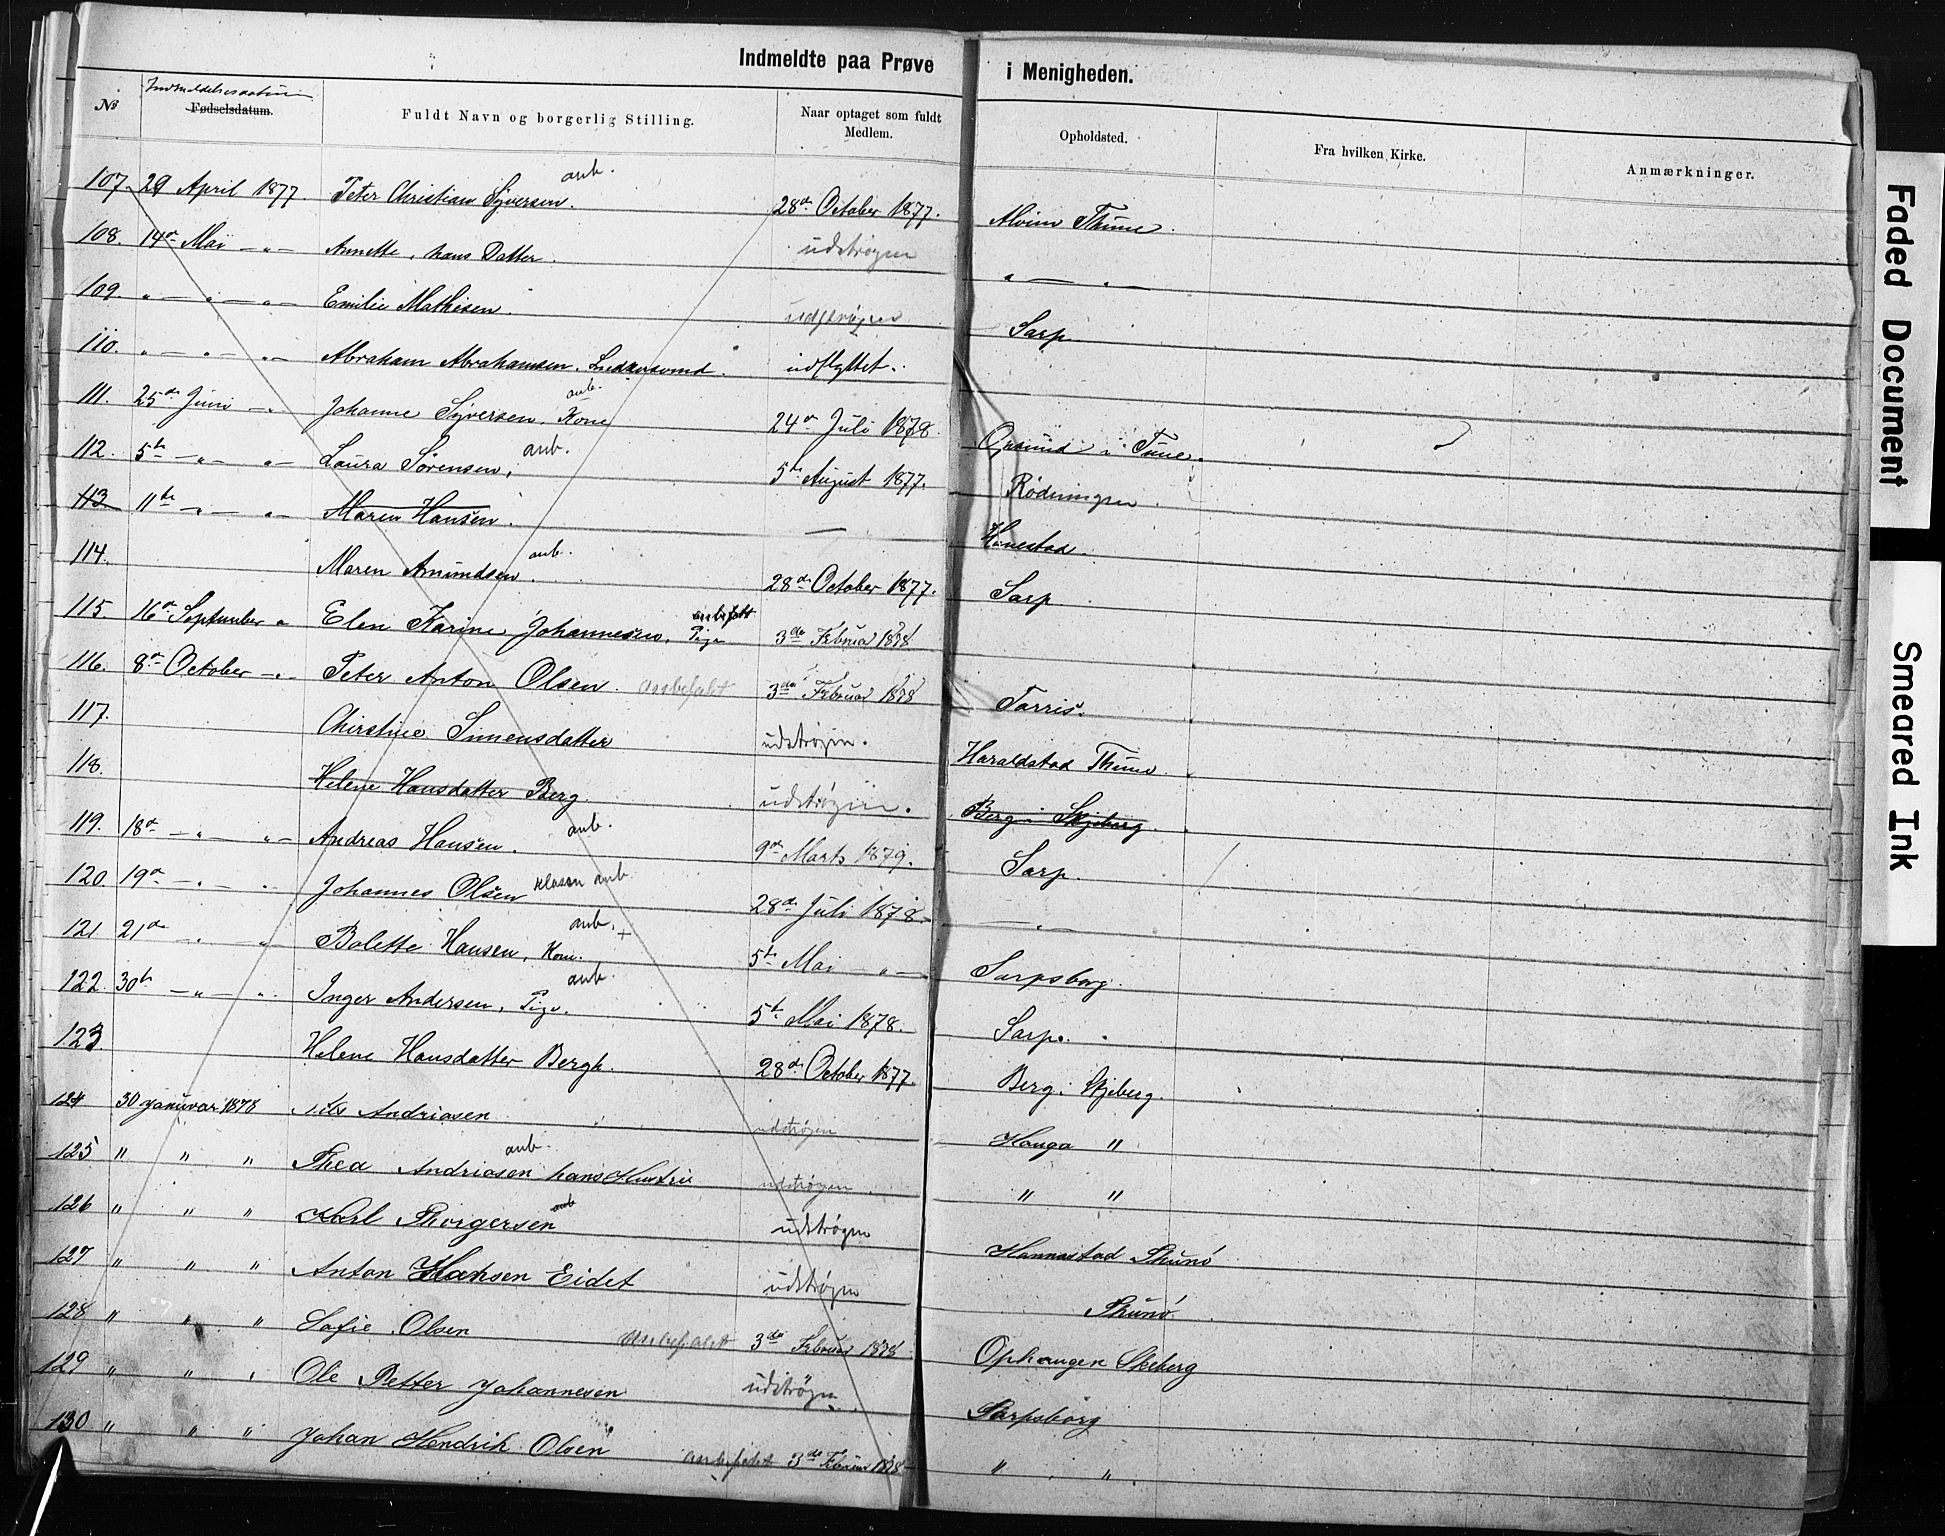 Indmeldte paa Prøve i Menigheden.
No Indmeldelsesdatum Fødselsdatum. Fuldt Navn og borgerlig Stilling. Naar optaget som fuldt Medlem. Opholdsted. Fra hvilken Kirke. Anmærkninger.
107. 29 April 1877. Peter Christian Syversen. anb. 28de October 1877. Alvim Thune.
108. 14de Mai — „ — Annette, hans Datter. udstrøgen „ — „ —
109. „ — „ — „ — Emilie Mathisen. udstrøgen Sarp
110. „ — „ — „ — Abraham Abrahamsen. udflyttet.
111. 25de Juni — „ Johanne Syversen, Kone anb. 24de Juli 1878. Grøund i Tune.
112. 5te — „ — „ — Laura Sørensen, anb. 5te August 1877. Rödningen.
113 11te — „ — „ — Maren Hansen. — Hanestad.
114. Maren Amundsen. anb. 28de October 1877. Sarp
115. 16de September „ Elen Karine Johannesen, Pige anbefalt 3de Februar 1878
116. 8de October — „ — Peter Anton Olsen. anbefalt 3de Februar 1878 Torris.
117. Christine Simensdatter udstrøgen. Haraldstad Thune.
118. Helene Hansdatter Berg. udstrøgen. Berg i Skjeberg.
119. 18de — „ — „ — Andreas Hansen. anb. 9de Marts 1879. Sarp.
120. 19de — „ — „ Johannes Olsen Klasen anb. 28de Juli 1878. — „ —
121. 21de — „ — „ Bolette Hansen, Kone. anb. + 5te Mai — „ — Sarpsborg.
122. 30te — „ — „ Inger Andersen, Pige. anb. 5te Mai 1878. Sarp.
123 Helene Hansdatter Bergh. 28de October 1877. Berg i Skjeberg.
124 30 januvar 1878 Nils Andriasen udstrøgen Hauga "
125 " " " Thea Andriasen hans Hustrie anb. udstrøgen " "
126 " " " Karl Thorgersen anb udstrøgen Hannestad Thunø
127 " " " Anton Hansen Eidet udstrøgen Thunø
128 " " " Sofie Olsen anbefalet 3de Februar 1878 Ophaugen Skeberg
129 " " " Ole Petter Johannesen udstrøgen Sarpsborg
130 " " " Johan Hendrik Olsen anbefalt 3de Februar 1878 " "
Faded Document
Smeared Ink